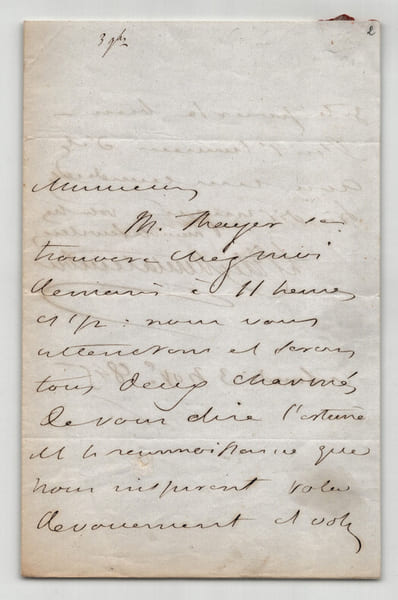 2
Monsieur
M. Thayer se
trouvera chez moi
demain à 11 heures
nous vous
attendrons et serons
tous deux charmés
de vous dire l'estime
et la reconnaissance que
nous inspirent votre
dévouement et votre